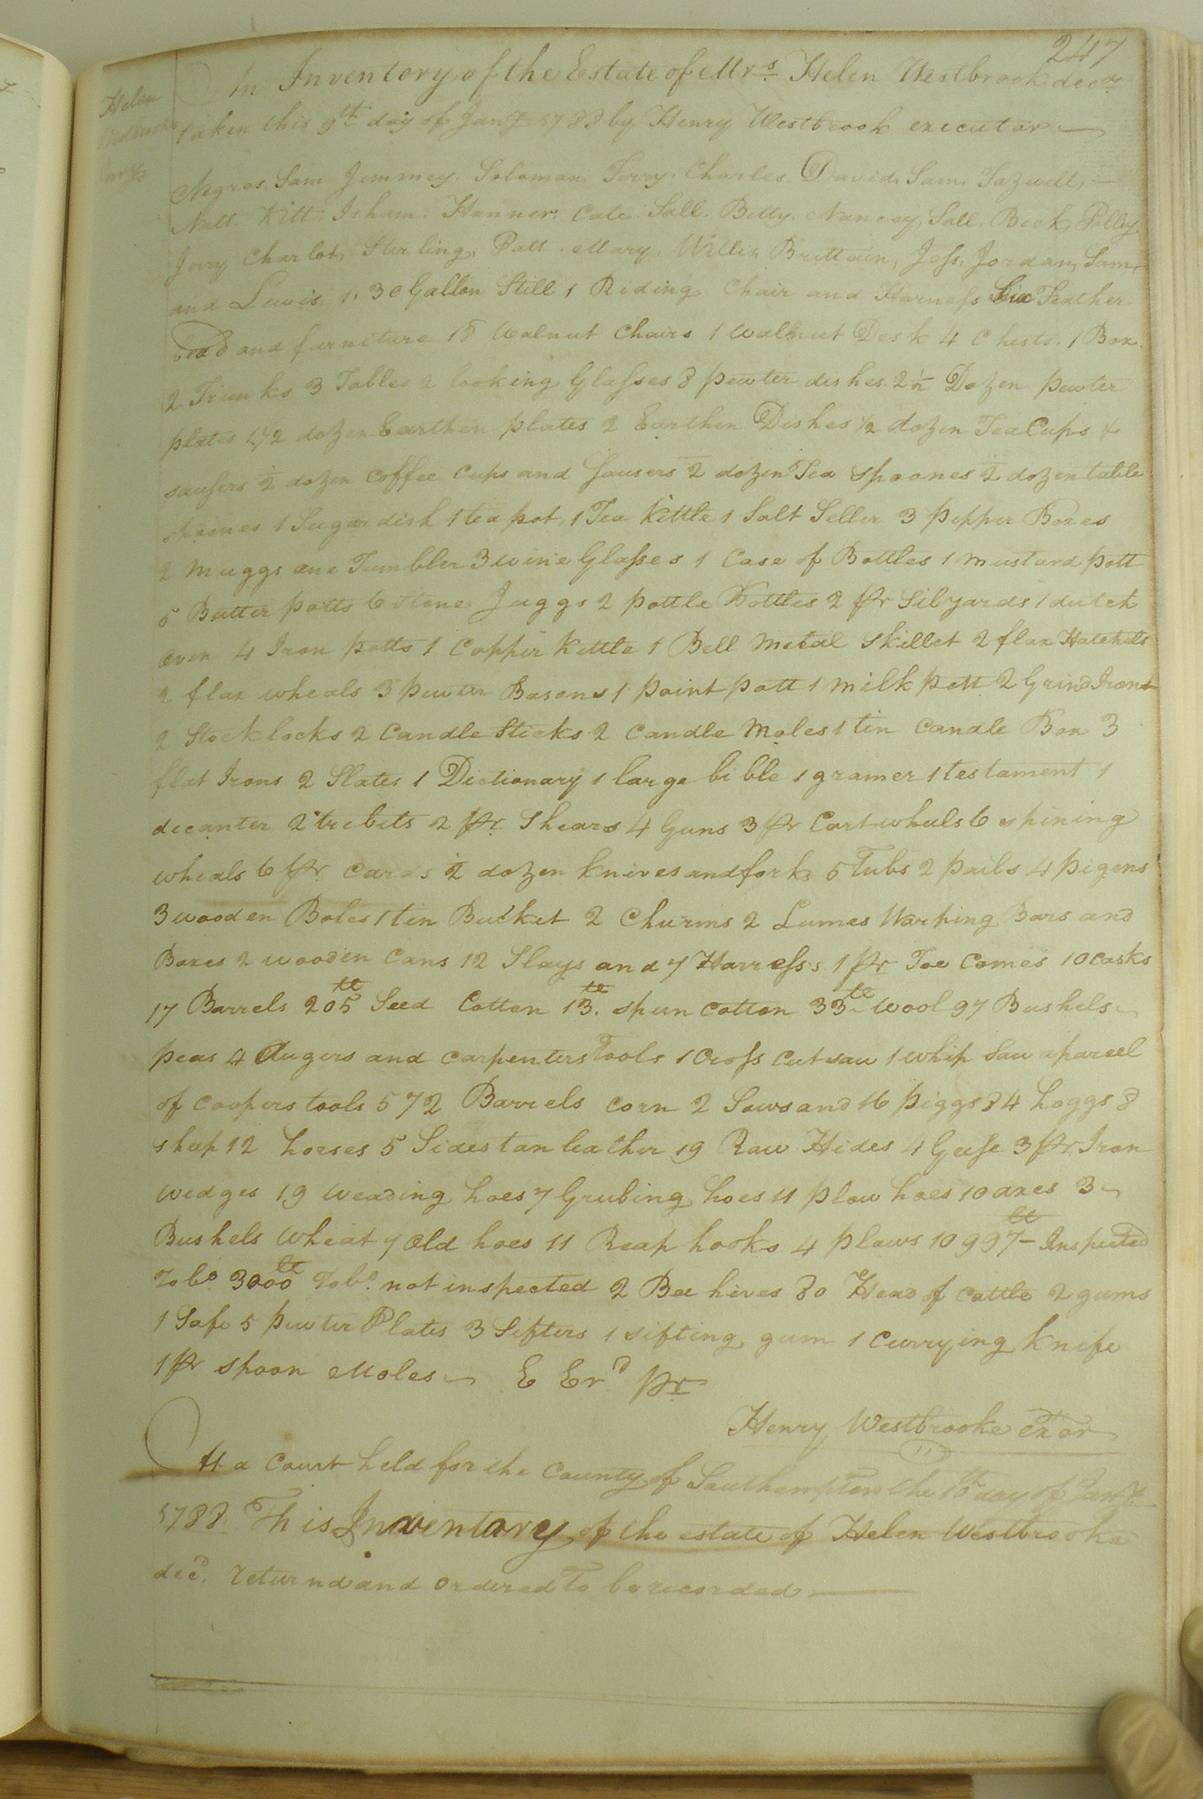 247
An Inventory of the Estate of Mrs. Helen Westbrook decd.
Helen
Westbrook
Invy
taken this 9th day of Jany 1788 by Henry Westbrook executor
Negros Sam Jemmey Soloman Terry Charles David Sam Tazwell
Natt Kitt Isham Hanner Cate Sall Betty Nancey Sall Beck Polley
Jerry Charlot Sterling Patt Mary Willis Brittain Jess Jordan Sam
and Lewis 1. 30 Gallon Still 1 Riding Chair and Harness Six Feather
bead and furniture 18 Walnut Chairs 1 Walnut Desk 4 Chests 1 Box
2 Trunks 3 Tables 2 looking Glasses 8 pewter dishes 2 1/2 Dozen pewter
plates 1/2 dozen Earthen plates 2 Earthen Dishes 1/2 dozen Tea Cups &
sausers 1/2 dozen coffee cups and Sausers 1/2 dozen Tea Spoones 1/2 dozen table
spoones 1 Sugar dish 1 tea pot 1 Tea kittle 1 Salt Seller 3 pepper Boxes
2 Muggs one Tumbler 3 wine Glasses 1 Case of Bottles 1 mustard pott
5 Butter potts 6 Stone Juggs 2 pottle Bottles 2 pr Silyards 1 dutch
oven 4 Iron potts 1 Copper kettle 1 Bell Metal Skillet 2 flax Hatchels
2 flax wheals 3 pewter Basons 1 paint pott 1 milk pott 2 Grind Irons
2 Stock locks 2 Candle Sticks 2 Candle Moles 1 tin Candle Box 3
flat Irons 2 Slates 1 Dictionary 1 large bible 1 gramer 1 testament 1
decanter 2 trebits 2 pr Shears 4 Guns 3 pr Cart wheels 6 spining
wheals 6 pr Cards 1/2 dozen knives and forks 5 Tubs 2 pails 4 pigens
3 wooden Boles 1 tin Bucket 2 Churms 2 Lumes Warping Bars and
Boxes 2 wooden Cans 12 Slays and 7 Harness 1 pr Toe Comes 10 casks
17 Barrels 205 lb Seed Cotton 13 lb spun cotton 33 lb wool 97 Bushels
peas 4 Augers and carpenters Tools 1 Cross Cut saw 1 whip Saw a parcel
of coopers tools 572 Barrels corn 2 Sows and 16 piggs 84 hoggs 8
shep 12 horses 5 Sides tan leather 19 Raw Hides 4 Geese 3 pr Iron
wedges 19 weading hoes 7 Grubing hoes 11 plow hoes 10 axes 3
Bushels wheat 7 old hoes 11 Reap hooks 4 plows 10997 lb Inspected
Tobo. 3000 lb Tobo. not inspected 2 Bee hives 80 Head of cattle 2 gums
1 Safe 5 Pewter Plates 3 Sifters 1 sifting gum 1 Currying knife
1 pr spoon Moles E Erd pr
Henry Westbrooke Exor
At a Court held for the County of Southampton the 10 day of Jany
1788 This Inventory of the estate of Helen Westbrooke
decd. returnd and ordered To be recorded